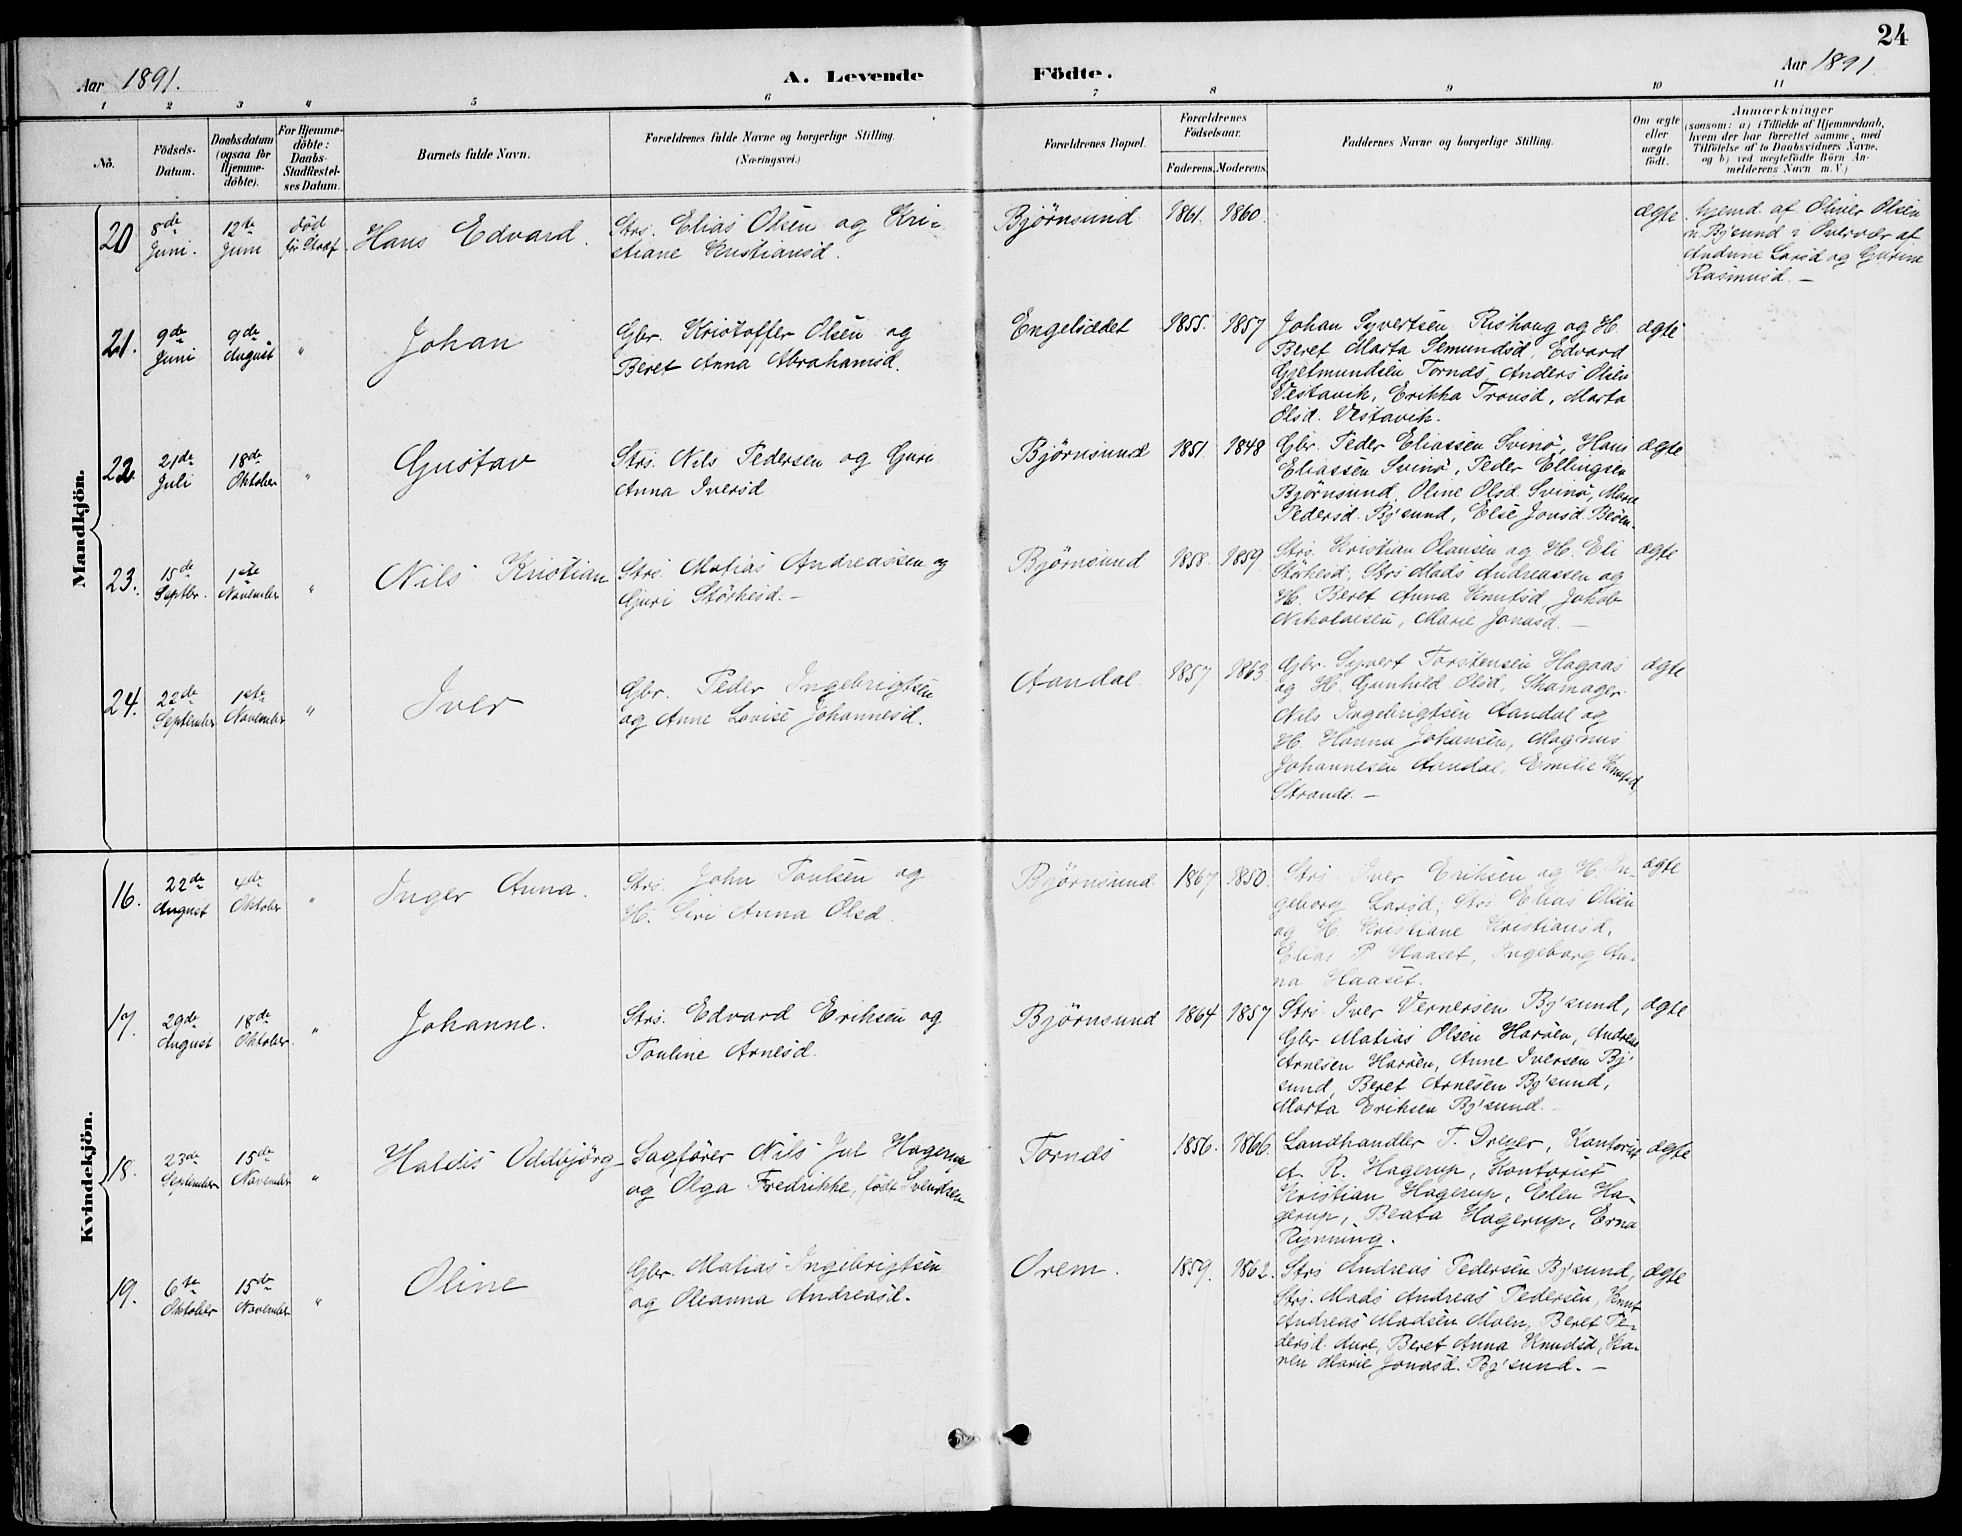 24
Aar 1891.
A. Levende
Födte.
Aar 1891
1 2 3 " 5 6 7 8 9 10 11
No.
Födsels-
Datum.
Daabsdatum
(ogsaa for
Hjemme-
döbte).
For Hjemme-
döbte:
Daabs-
Stadfestel-
ses Datum.
Barnets fulde Navn.
Forældrenes fulde Navne og borgerlige Stilling.
(Næringsvei.)
Forældrenes Bopæl.
Forældrenes
Födselsaar.
Faderens. Moderens.
Faddernes Navne og borgerlige Stilling.
Om ægte
eller
uægte
födt.
Anmærkninger
(saasom: a) i Tilfælde af Hjemmedaab,
hvem der har forrettet samme, med
Tilföielse af to Daabsvidners Navne,
og b) ved uægtefödte Börn An-
melderens Navn m. V.)
Mandkjön.
20
8de
Juni.
12te
Juni
död
før Stadf.
Hans Edvard.
Strs. Elias Olsen og Kri-
stiane Kristiansd.
Bjørnsund
1861. 1860.
ægte
hjemd. af Oliver Olsen
Bj'sund i Overvær af
Larsd og Gurine
Rasmusd. –
21.
9de
Juni
9de
August
"
Johan
Gbr. Kristoffer Olsen og
Beret Anna Abrahamsd.
Engelsædet
1855. 1857
Johan Syvertsen Rishaug og H.
Beret Marta Semundsd, Edvard
Gjelmundsen Tornes, Anders Olsen
Vestavik, Erikka Tronsd, Marta
Olsd. Vestavik.
ægte
22.
21de
Juli
18de
Oktober
"
Gustav
Strs. Nils Pedersen og Guri
Anna Iversd
Bjørnsund
1851. 1848
Gbr. Peder Eliassen Svinø, Hans
Eliassen Svinø, Peder Ellingsen
Bjørnsund, Oline Olsd. Svinø, Marie
Pedersd. Bj'sund, Else Jonsd. Beøen.
ægte
23.
15de
Septbr.
1ste
November
"
Nils Kristian
Strs. Matias Andreassen og
Guri Störkesd. –
Bjørnsund
1858. 1859.
Strs. Kristian Olausen og H. Eli
Störkesd, Strs Mads Andreassen og
H. Beret Anna Knutsd, Jakob
Nikolaisen, Marie Jonasd. –
ægte
24.
22de
September
1ste
November
"
Iver
Gbr. Peder Ingebrigtsen
og Anne Lovise Johannesd.
Aandal
1857 1863
Gbr. Syvert Torstensen Hagaas
og H. Gunhild Olsd, Skamager
Nils Ingebrigtsen Aandal og
H. Hanna Johansen, Magnus
Johannesen Aandal, Emilie Knutsd,
Strande. –
ægte
Kvindekjön.
16.
22de
August
4de
Oktober
"
Inger Anna.
Strs. John Poulsen og
H. Siri Anna Olsd.
Bjørnsund
1867 1850.
Strs Iver Eriksen og H. In-
geborg Larsd, Strs Elias Olsen
og H. Kristiane Kristiansd,
Elias P. Haaset, Ingeborg An-
na Haaset.
ægte
17.
29de
August
18de
Oktober
"
Johanne.
Strs. Edvard Eriksen og
Pauline Arnesd.
Bjørnsund
1864 1857
Strs. Iver Vernersen Bj'sund,
Gbr Matias Olsen Harøen, Andreas
Arnesen Harøen, Anne Iversen Bj'
sund, Beret Arnesen Bj'sund,
Marta Eriksen Bj'sund. –
ægte
18.
23de
September
15de
November
"
Haldis Oddbjörg
Sagfører Nils Jul Hagerup
og Olga Fredrikke, født Svendsen
Tornes
1856. 1866.
Landhandler T. Dreyer, Kontorist
A. R. Hagerup, Kontorist
Kristian Hagerup, Elen Ha-
gerup, Beata Hagerup, Erna
Rynning.
ægte
19.
6te
Oktober
15de
November
"
Oline
Gbr. Matias Ingebrigtsen
og Oleanna Andreasd.
Orem.
1859. 1862.
Strs Andreas Pedersen Bj'sund,
Strs. Mads Andreas Pedersen, Knut
Andreas Madsen Moen, Beret Pe-
dersd. Aure, Beret Anna Knudsd, Ka-
ren Marie Jonasd. Bj'sund. –
ægte